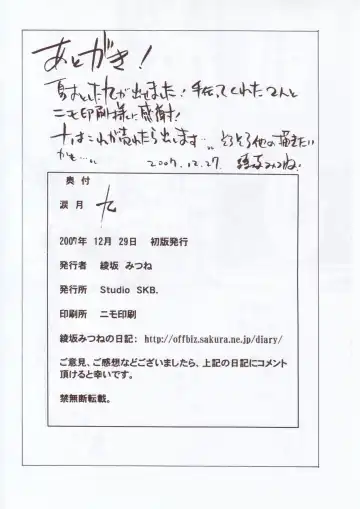 あとがき！
夏おとしたけど出せました！手伝ってくれたてんと
ニモ印刷様に感謝！
十はこれが売れたら出します…。そろそろ他の描きたい
かも…。
2007.12.27. 綾坂みつね
奥付
涙月 九
2007年 12月 29日 初版発行
発行者 綾坂 みつね
発行所 Studio SKB.
印刷所 ニモ印刷
綾坂みつねの日記： http://offbiz.sakura.ne.jp/diary/
ご意見、ご感想などございましたら、上記の日記にコメント
頂けると幸いです。
禁無断転載。